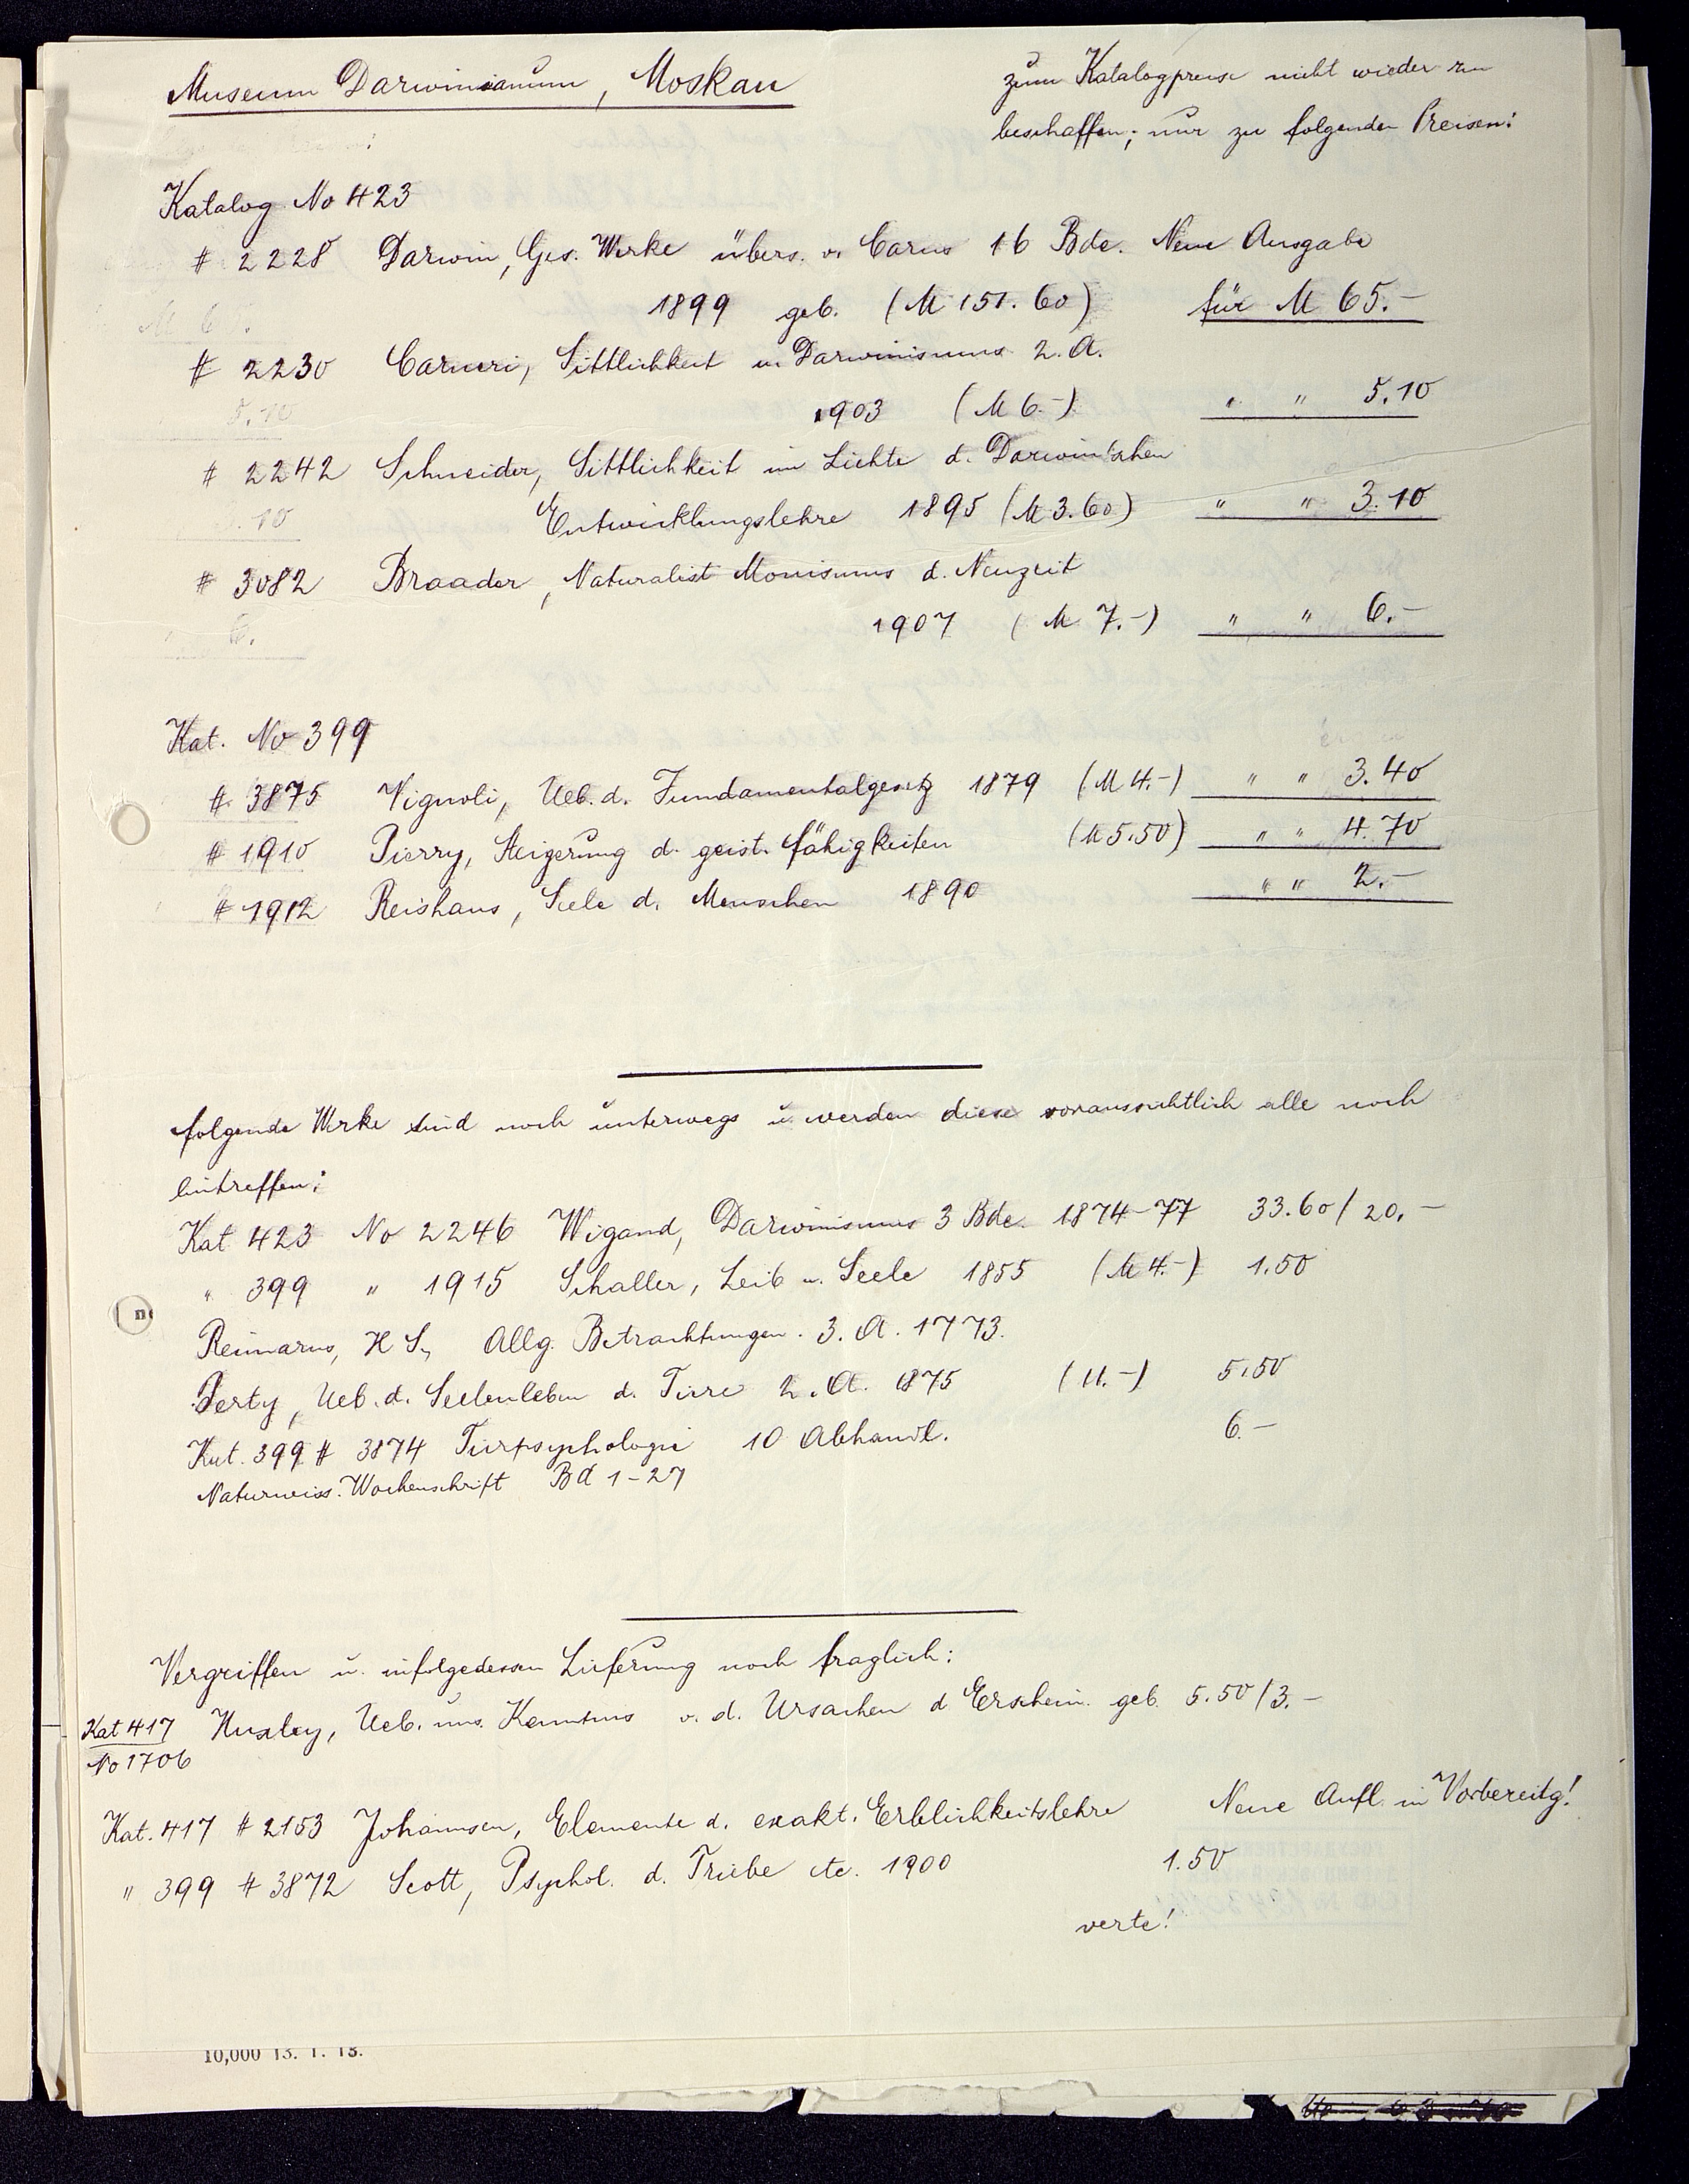 Museum Darwinianum, Moskau
zum Katalogpreise nicht wieder zu
beschaffen; nur zu folgenden Preisen:
Katalog No 423
# 2228 Darwin, Ges. Werke übers. v. Carus 16 Bde. Neue Ausgabe
1899 geb. (M 151.60) für M 65.-
# 2230 Carneri, Sittlichkeit u. Darwinismus 2. A.
1903 (M 6.-) " " 5.10
# 2242 Schneider, Sittlichkeit im Lichte d. Darwin'schen
Entwicklungslehre 1895 (M 3.60) " " 3.10
# 3082 Braader, Naturalist Monismus d. Neuzeit
1907 (M 7.-) " " 6.-
Kat. No 399
# 3875 Vignoli, Ueb. d. Fundamentalgesetz 1879 (M 4.-) " " 3.40
# 1910 Pierry, Steigerung d. geist. Fähigkeiten (M 5.50) " " 4.70
# 1912 Reishaus, Seele d. Menschen 1890 " " 2.-
folgende Werke sind noch unterwegs u. werden diese voraussichtlich alle noch
eintreffen:
Kat 423 No 2246 Wigand, Darwinismus 3 Bde. 1874-77 33.60/20.-
" 399 " 1915 Schaller, Leib u. Seele 1855 (M 4.-) 1.50
Reimarus, H S., Allg. Betrachtungen. 3. A. 1773.
Perty, Ueb. d. Seelenleben d. Tiere 2. A. 1875 (11.-) 5.50
Kat. 399 # 3874 Tierpsychologie 10 Abhandl. 6.-
Naturwiss. Wochenschrift Bd 1-27
Vergriffen u. infolgedessen Lieferung noch fraglich:
Kat 417 Huxley, Ueb. uns. Kenntnis v. d. Ursachen d Erschein. geb. 5.50/3.-
No 1706
Kat. 417 # 2153 Johannsen, Elemente d. exakt. Erblichkeitslehre Neue Aufl. in Vorbereitg!
" 399 # 3872 Scott, Psychol. d. Triebe etc. 1900 1.50
verte!
10,000 13. 1. 13.